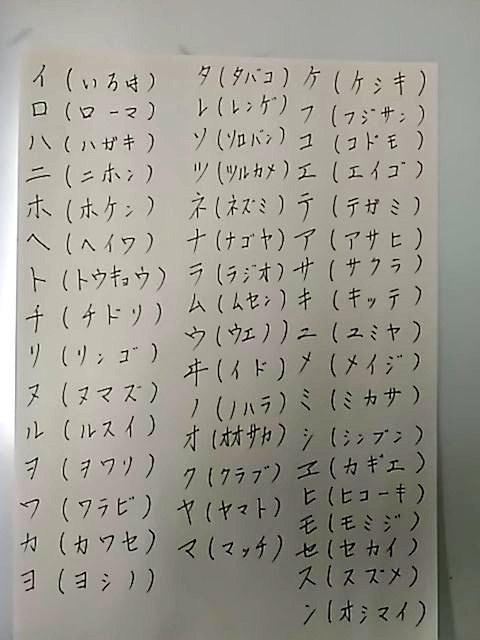 イ（いろは）
ロ（ローマ）
ハ（ハガキ）
ニ（ニホン）
ホ（ホケン）
ヘ（ヘイワ）
ト（トウキョウ）
チ（チドリ）
リ（リンゴ）
ヌ（ヌマズ）
ル（ルスイ）
ヲ（ヲワリ）
ワ（ワラビ）
カ（カワセ）
ヨ（ヨシノ）
タ（タバコ）
レ（レンゲ）
ソ（ソロバン）
ツ（ツルカメ）
ネ（ネズミ）
ナ（ナゴヤ）
ラ（ラジオ）
ム（ムセン）
ウ（ウエノ）
ヰ（イド）
ノ（ノハラ）
オ（オオサカ）
ク（クラブ）
ヤ（ヤマト）
マ（マッチ）
ケ（ケシキ）
フ（フジサン）
コ（コドモ）
エ（エイゴ）
テ（テガミ）
ア（アサヒ）
サ（サクラ）
キ（キッテ）
ユ（ユミヤ）
メ（メイジ）
ミ（ミカサ）
シ（シンブン）
ヱ（カギエ）
ヒ（ヒコーキ）
モ（モミジ）
セ（セカイ）
ス（スズメ）
ン（オシマイ）